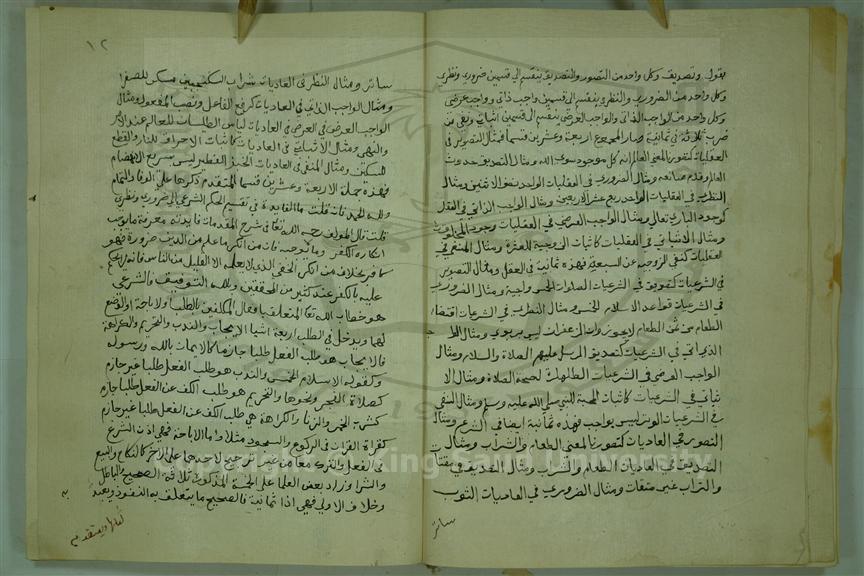 يقول وتصديق وكل واحد من التصور والتصديق ينقسم الى قسمين ضروري ونظري
وكل واحد من الضروري والنظري ينقسم الى قسمين واجب ذاتي وواجب عرضي
وكل واحد من الواجب الذاتي والواجب العرضي ينقسم الى قسمين اثباتي ونفي
ضرب ثلاثة في ثمانية صار المجموع اربعة وعشرين قسما فمثال التصور في
العقليات كتصورنا لمعنى العالم انه كل موجود سوى الله ومثال التصديق حدوث
العالم وقدم صانعه ومثال الضروري في العقليات الواحد نصف الاثنين ومثال
النظري في العقليات الواحد ربع عشر الاربعين ومثال الواجب الذاتي في العقل
كوجود الباري تعالى ومثال الواجب العرضي في العقليات وجود
ومثال الاثباتي في العقليات كاثبات الزوجية للعشرة ومثال المنفي في
العقليات كنفي الزوجية عن السبعة فهذه ثمانية في العقل ومثال التصور
في الشرعيات الصلوات الخمس واجبة ومثال الضروري
في الشرعيات قواعد الاسلام الخمس ومثال النظري في الشرعيات اقتضاء
الطعام من ثمن الطعام لا يجوز وان الزعفران ليس بربوي ومثال
الذاتي في الشرعيات كتصديق المرسل عليهم الصلاة والسلام ومثال
الواجب العرضي في الشرعيات الطهارة لصحة الصلاة ومثال الا
ثباتي في الشرعيات كاثبات المحبة للنبي صلى الله عليه وسلم ومثال المنفي
في الشرعيات الوتر ليس بواجب فهذه ثمانية ايضا في الشرع ومثال
التصور في العاديات كتصورنا لمعنى الطعام والشراب ومثال
التصديق في العاديات الطعام والشراب ومثال التصديق
والتراب غير مقتات ومثال الضروري في العاديات الثوب
ساتر
١٢
ساتر ومثال النظر في العاديات شراب السكنجبين مسكن للصفرا
ومثال الواجب الذاتي في العاديات كرفع الفاعل ونصب المفعول ومثال
الواجب العرضي في العاديات لباس الطيلسان للعالم عند الامر
والنهي ومثال الاثباتي في العاديات كاثبات الاحراق للنار والقطع
للسكين ومثال المنفي في العاديات الخبز الفطير ليس بسريع الانهضام
فهذه جملة الاربعة وعشرين قسما المتقدم ذكرها على الوفا والتمام
ولله الحمد فان قلت ما الفايدة في تقسيم الحكم الشرعي الى ضروري ونظري
قلت قال المولف رحمه الله تعالى في شرح المقدمات فايدته معرفة ما يوجب
انكاره الكفر وما لا يوجبه فان من انكر ما علم من الدين ضرورة فهو
كافر بخلاف من انكر الخفي الذي لا يعلمه الا القليل من الناس فانه
عليه بالكفر عند كثير من المحققين وبالله التوفيق والشرعي
هو خطاب الله تعالى المتعلق بافعال المكلفين بالطلب او الاباحة او الوضع
لهما ويدخل في الطلب اربعة اشيا الايجاب والندب والتحريم والكراهة
فالايجاب هو طلب الفعل طلبا جازما كالايمان بالله ورسوله
وكقواعد الاسلام الخمس والندب هو طلب الفعل طلبا غير جازم
كصلاة الفجر ونحوها والتحريم هو طلب الكف عن الفعل طلبا جازما
كشرب الخمر والزنا والكراهة هي طلب الكف عن الفعل طلبا غير جازم
كقراءة القران في الركوع والسجود مثلا واما الاباحة فهي اذن الشرع
في الفعل والترك معا من غير ترجيح لاحدهما على الاخر كالنكاح والبيع
والشرا وزاد بعض العلما على الخمسة المذكورة ثلاثة الصحيح والباطل
وخلاف الاولى فهي اذا ثمانية فالصحيح ما يتعلق به النفوذ ويعتد
به
King Saud University